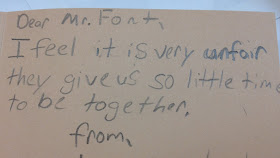 Dear Mr. Font,
I feel it is very unfair
they give us so little time
to be together.
from,